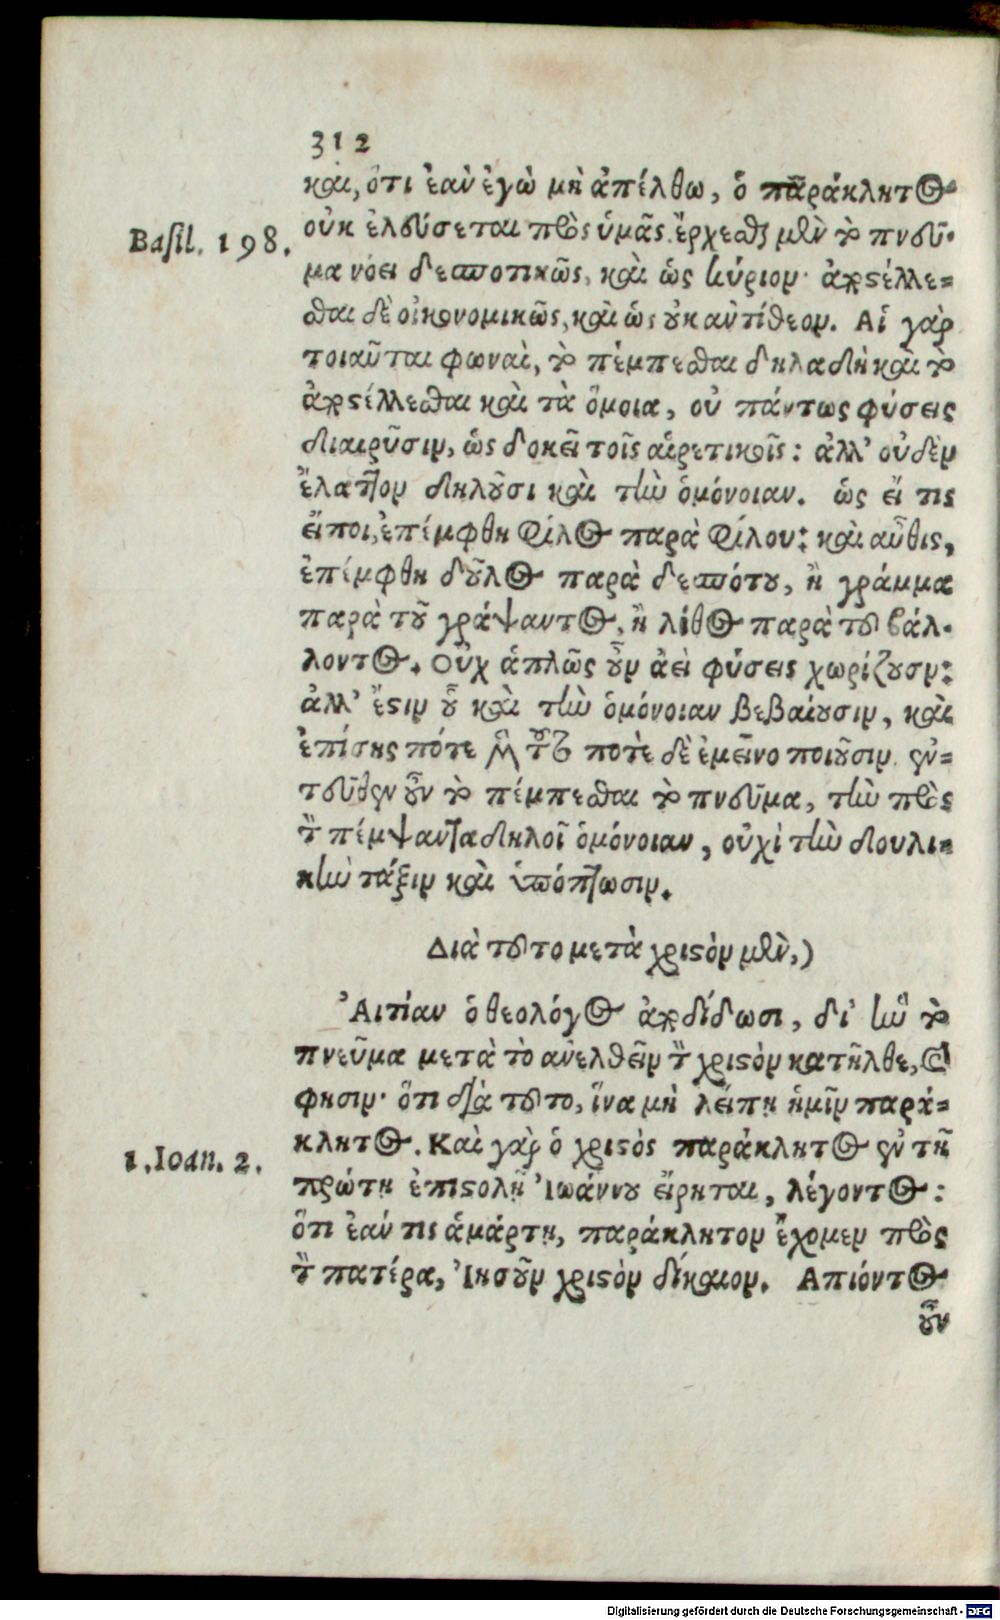 312
και, ότι ἐαν ἐγὼ μὴ ἀπέλθω, ὁ παράκλητος
Basil. 198.
οὐκ ἐλεύσεται πρὸς ὑμᾶς. ἔρχεσθαι μὲν τὸ πνεῦ-
μα νόει δεσποτικῶς, καὶ ὡς κύριον· ἀποστέλλε-
σθαι δὲ οἰκονομικῶς, καὶ ὡς οὐκ αντίθεον. Αἱ γὰρ
τοιαῦται φωναὶ, τὸ πέμπεσθαι δηλαδὴ καὶ τὸ
ἀποστέλλεσθαι καὶ τὰ ὅμοια, οὐ πάντως φύσεις
διαιροῦσιν, ὡς δοκεῖ τοῖς αἱρετικοῖς: ἀλλ' οὐδὲν
ἔλαττον δηλοῦσι καὶ τὴν ὁμόνοιαν. ὡς εἴ τις
εἴποι, ἐπέμφθη φίλος παρὰ φίλου: καὶ αὖθις,
ἐπέμφθη δοῦλος παρὰ δεσπότου, ἢ γράμμα
παρὰ τοῦ γράψαντος, ἢ λίθος παρὰ του βάλ-
λοντος. Οὐχ ἁπλῶς οὖν ἀεὶ φύσεις χωρίζουσιν:
ἀλλ' ἔστιν οὗ καὶ τὴν ὁμόνοιαν βεβαιουσιν, καὶ
ἐπίσης πότε μὲν τοῦτο ποτὲ δὲ ἐκεῖνο ποιοῦσιν. ἐν-
τεῦθεν οὖν τὸ πέμπεσθαι τὸ πνεῦμα, τὴν πρὸς
τὸν πέμψαντα δηλοῖ ὁμόνοιαν, οὐχὶ τὴν δουλι-
κὴν τάξιν καὶ ὑπόπτωσιν.
Διὰ τουτο μετὰ χριστὸν μὲν,)
Ἀιτίαν ὁ θεολόγος ἀποδίδωσι, δι' ἣν τὸ
πνεῦμα μετὰ τὸ ανελθεῖν τὸν χριστὸν κατῆλθε, καὶ
φησιν· ὅτι διὰ τουτο, ἵνα μὴ λείπῃ ἡμῖν παρά-
κλητος. Καὶ γὰρ ὁ χριστὸς παράκλητος ἐν τῇ
1. Ioan. 2.
πρώτῃ ἐπιστολῇ Ἰωάννου εἴρηται, λέγοντος:
ὅτι ἐαν τις ἁμάρτῃ, παράκλητον ἔχομεν πρὸς
τὸν πατέρα, Ἰησοῦν χριστὸν δίκαιον. Απιόντος
οὖν
Digitalisierung gefördert durch die Deutsche Forschungsgemeinschaft - DFG